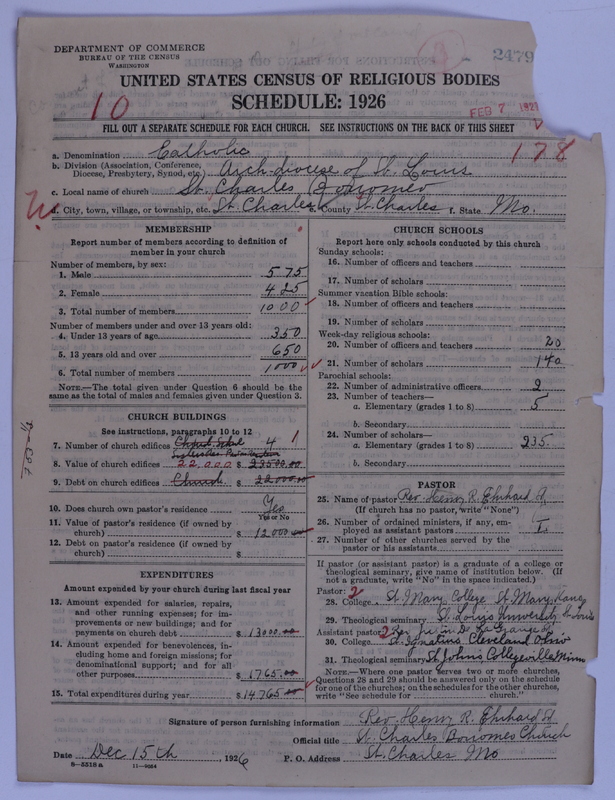 DEPARTMENT OF COMMERCE
BUREAU OF THE CENSUS
WASHINGTON
2479
UNITED STATES CENSUS OF RELIGIOUS BODIES
SCHEDULE: 1926
10
FEB 7 1927
FILL OUT A SEPARATE SCHEDULE FOR EACH CHURCH. SEE INSTRUCTIONS ON THE BACK OF THIS SHEET
178
a. Denomination Catholic
b. Division (Association, Conference, Diocese, Presbytery, Synod, etc.) Arch-diocese of St. Louis
c. Local name of church St. Charles Borromeo
d. City, town, village, or township, etc. St. Charles e. County St. Charles f. State Mo.
MEMBERSHIP
Report number of members according to definition of
member in your church
Number of members, by sex:
1. Male 575
2. Female 425
3. Total number of members 1000
Number of members under and over 13 years old:
4. Under 13 years of age 350
5. 13 years old and over 650
6. Total number of members 1000
NOTE.—The total given under Question 6 should be
the same as the total of males and females given under Question 3.
CHURCH BUILDINGS
See instructions, paragraphs 10 to 12
7. Number of church edifices Church School 4 1
8. Value of church edifices 22000 $
9. Debt on church edifices Church $ 22000.00
10. Does church own pastor's residence Yes
Yes or No
11. Value of pastor's residence (if owned by
church) $ 12000.00
12. Debt on pastor's residence (if owned by
church) $
EXPENDITURES
Amount expended by your church during last fiscal year
13. Amount expended for salaries, repairs,
and other running expenses; for im-
provements or new buildings; and for
payment on church debt $ 13000.00
14. Amount expended for benevolences, in-
cluding home and foreign missions; for
denominational support; and for all
other purposes $ 1765.00
15. Total expenditures during year $ 14765.00
CHURCH SCHOOLS
Report here only schools conducted by this church
Sunday schools:
16. Number of officers and teachers
17. Number of scholars
Summer vacation Bible schools:
18. Number of officers and teachers
19. Number of scholars
Week-day religious schools:
20. Number of officers and teachers 20
21. Number of scholars 140
Parochial schools:
22. Number of administrative officers 2
23. Number of teachers—
a. Elementary (grades 1 to 8) 5
b. Secondary
24. Number of scholars—
a. Elementary (grades 1 to 8) 235
b. Secondary
PASTOR
25. Name of pastor Rev. Henry R. Ehrhard
(If church has no pastor, write "None")
26. Number of ordained ministers, if any, em-
ployed as assistant pastors I.
27. Number of other churches served by the
pastor or his assistants
If pastor (or assistant pastor) is a graduate of a college or
theological seminary, give name of institution below. (If
not a graduate, write "No" in the space indicated.)
Pastor: 2
28. College St. Mary College St. Mary, Kans
29. Theological seminary St. Louis University St. Louis
Assistant pastor: 2
30. College St. Ignatius Cleveland Ohio
31. Theological seminary St. Johns, Collegeville Minn
NOTE.—Where one pastor serves two or more churches,
Questions 28 and 29 should be answered only on the schedule
for one of the churches; on the schedules for the other churches,
write "See schedule for church."
Signature of person furnishing information Rev. Henry R. Ehrhard
Official title St. Charles Borromeo Church
Date Dec 15th, 1926
P. O. Address St. Charles Mo
8—5518a
11—9084